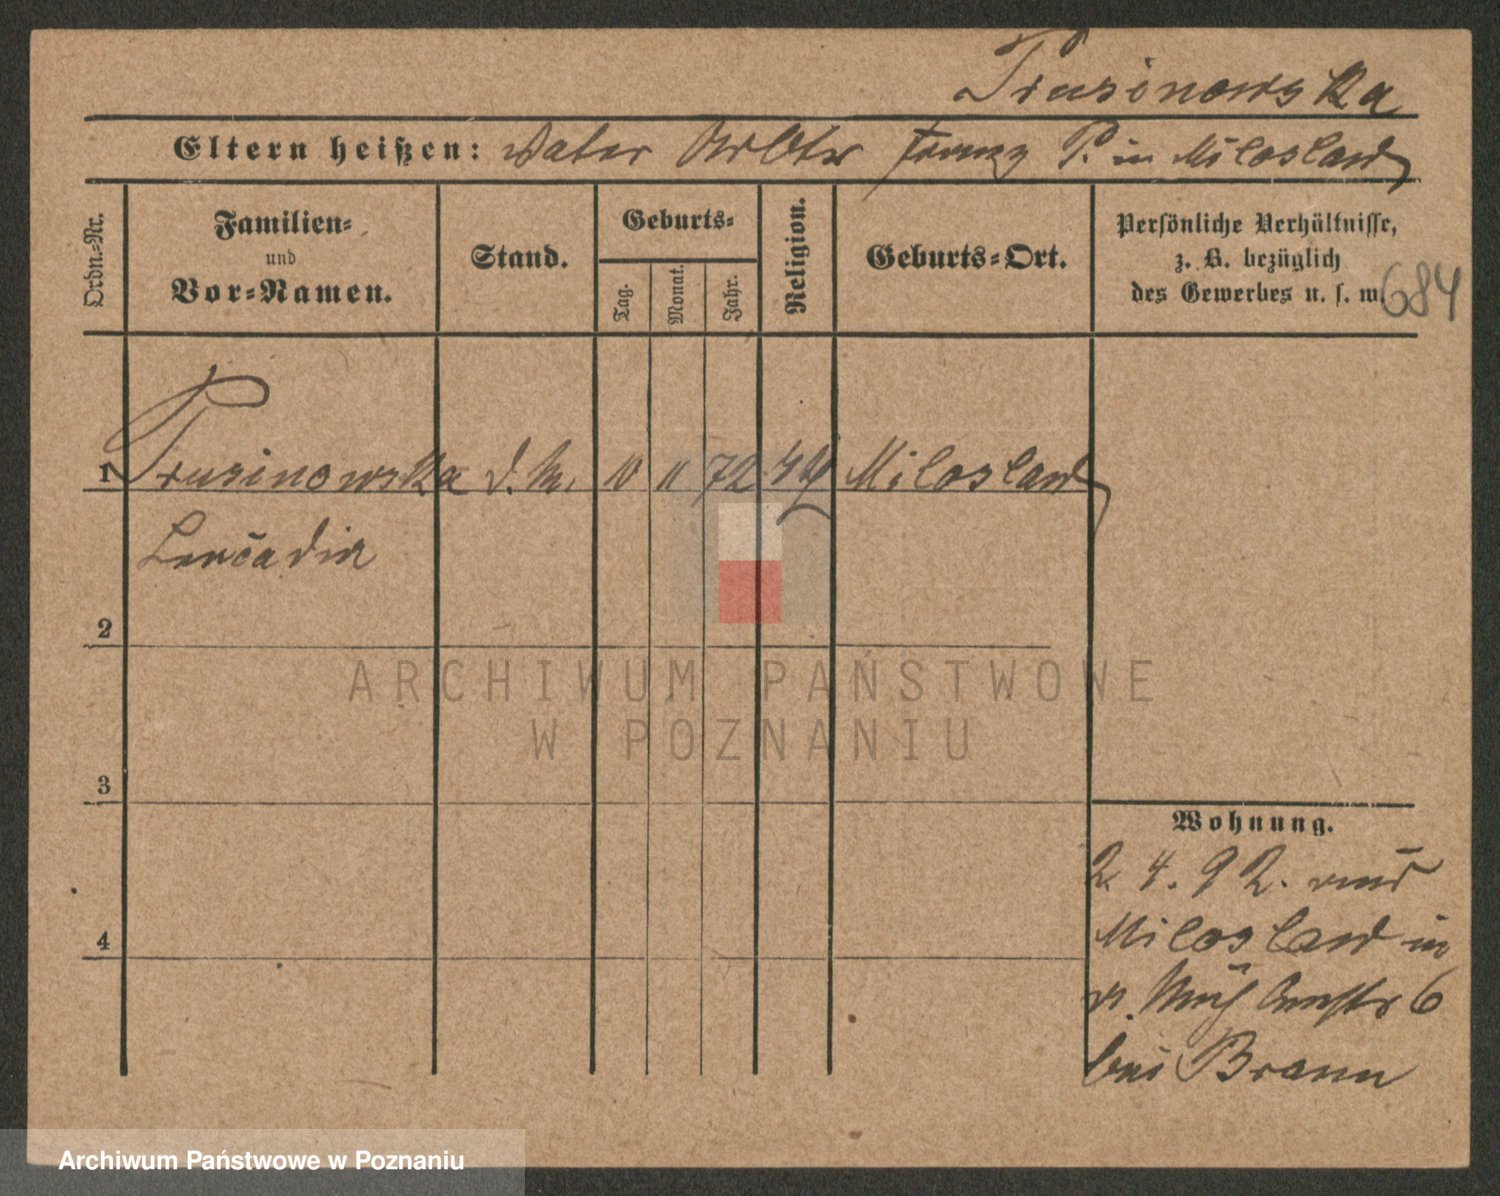 Prusinowska
Eltern heißen: Vater Arbtr Franz P. in Miloslaw
Ordn.-Nr.
Familien- und Vor-Namen.
Stand.
Geburts-
Tag.
Monat.
Jahr.
Religion.
Geburts-Ort.
Persönliche Verhältnisse,
z. B. bezüglich
des Gewerbes u. s. w.
684
1 Prusinowska d. M. 10 11 72 Miloslaw
Leocadia
2
3
4
Wohnung.
2 4. 92. aus
Miloslaw in
6
bei Braun
ARCHIWUM PAŃSTWOWE
W POZNANIU
Archiwum Państwowe w Poznaniu